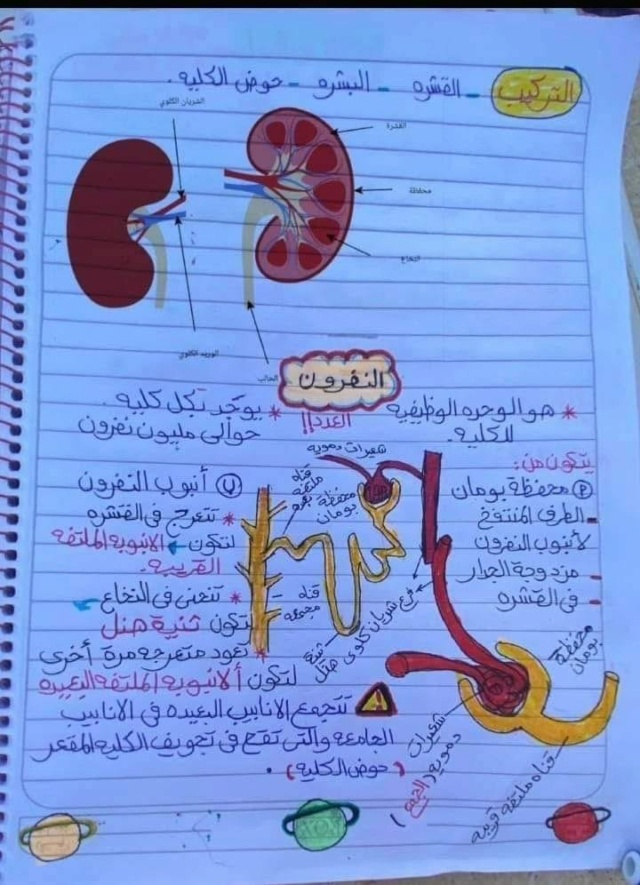 التركيب - القشره - البشره - حوض الكليه.
الشريان الكلوي
القشرة
محفظة
النخاع
الوريد الكلوي
الحالب
النفرون
* هو الوحده الوظيفيه
للكليه.
العدد!! * يوجد بكل كليه
حوالى مليون نفرون
يتكون من:
محفظة بومان
- الطرف المنتفخ
لأنبوب النفرون
- مزدوجة الجدار
- فى القشره
أنبوب النفرون
* تتعرج فى القشره
لتكون الانبوبه الملتفه
القريبه.
* تنحنى فى النخاع
لتكون ثنية هنل
* تعود متعرجه مرة أخرى
لتكون ألانبوبه الملتفه البعيده
تتجمع الانابيب البعيده فى الانابيب
الجامعه والتى تقع فى تجويف الكليه المقعر
(حوض الكليه).
شعيرات دمويه
قناه
ملتفة
محفظة
بومان
قناه
مجمعه
ثنية
هنل
فرع شريان كلوى
محفظة
بومان
شعيرات
دمويه (الجمع)
قناه ملتفة قريبه